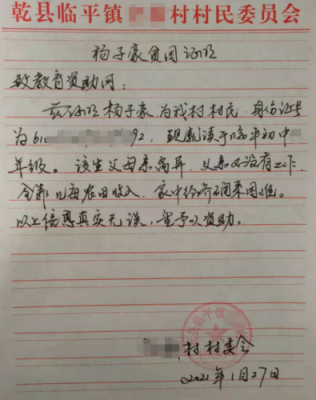 乾县临平镇 村村民委员会
杨子豪贫困证明
致教育资助网：
兹证明杨子豪为我村村民，身份证号
为610 92，现就读于临平初中
年级。该生父母亲离异，父亲又没有工作，
全靠几亩农田收入，家中经济来源困难。
以上信息真实无误，望予以资助。
村村委会
2021年1月27日